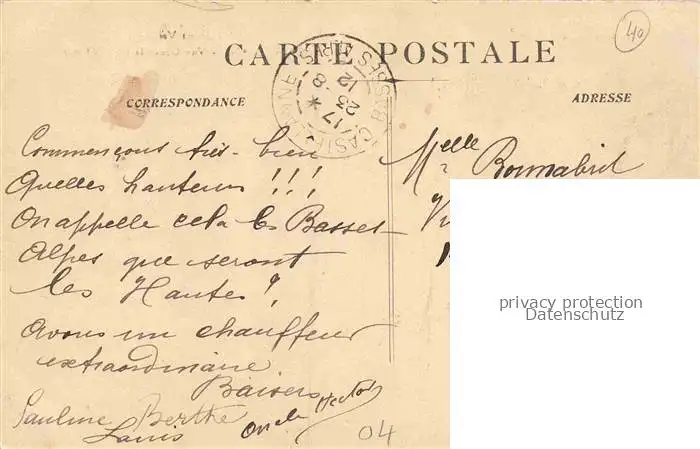 40
CARTE POSTALE
CORRESPONDANCE
ADRESSE
CASTELLANE
BASSES ALPES
17 *
23 -8
12
Commençons très-bien
Quelles hauteurs !!!
On appelle cela les Basses
Alpes que seront
les Hautes?
Avons un chauffeur
extraordinaire
Baisers
Pauline Berthe
Louis
Oncle Hector
04
Melle Bonnabel
privacy protection
Datenschutz